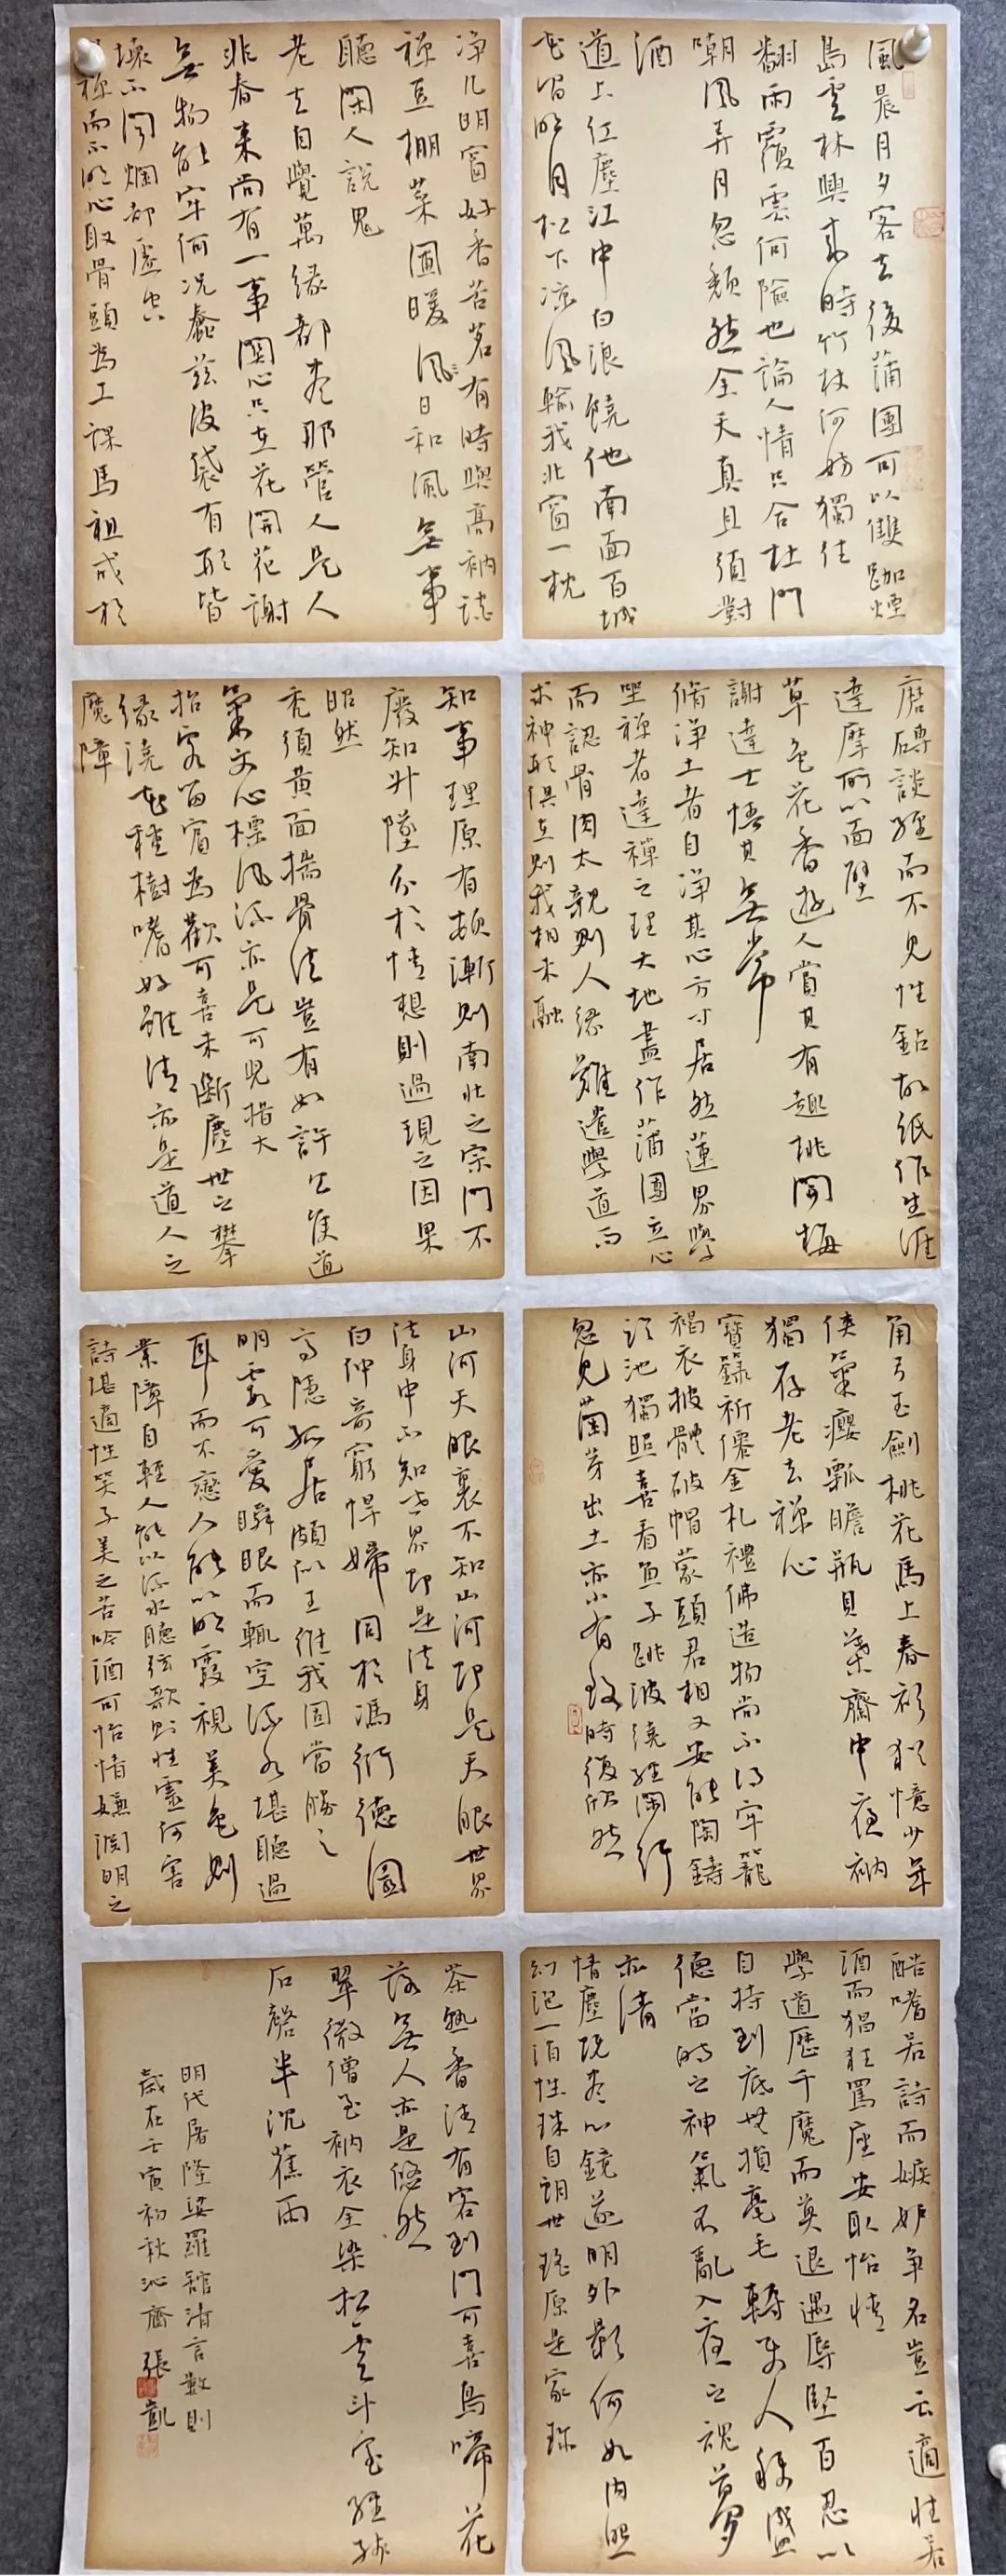 風晨月夕客去後蒲團可以雙跏煙
島雲林興來時竹杖何妨獨往
翻雨覆雲何險也論人情只合杜門
嘲風弄月忽頹然全天真且須對
酒
道上紅塵江中白浪饒他南面百城
花間明月松下涼風輸我北窗一枕
淨几明窗好香苦茗有時與高衲談
禪豆棚菜圃暖風日和風無事
聽閑人說鬼
老去自覺萬緣都盡那管人是人
非春來尚有一事關心只在花開花謝
無物能牢何況蠢茲皮袋有形皆
壞不聞爛卻虛空
禪而不明心取骨頭為工課馬祖戒於
磨磚談經而不見性鑽故紙作生涯
達摩所以面壁
草色花香遊人賞其有趣桃開梅
謝達士悟其無常
脩淨土者自淨其心方寸居然蓮界學
坐禪者達禪之理大地盡作蒲團立心
而認骨肉太親則人緣難遣學道而
求神形俱在則我相未融
知事理原有頓漸則南北之宗門不
廢知升墜分於情想則過現之因果
昭然
禿須黃面揣骨法豈有如許公侯道
氣文心標風流亦是可兒措大
招客留賓為歡可喜未斷塵世之攀
緣澆花種樹嗜好雖清亦是道人之
魔障
角弓玉劍桃花馬上春衫猶憶少年
俠氣癭瓢膽瓶貝葉齋中夜衲
獨存老去禪心
寶籙祈僊金札禮佛造物尚不得牢籠
褐衣披體破帽蒙頭君相又安能陶鑄
臨池獨照喜看魚子跳波繞徑閑行
忽見蘭芽出土亦小有致時復欣然
山河天眼裏不知山河即是天眼世界
法身中不知世界即是法身
白仲奇窮悍婦同於馮衍德園
高隱孤居頗似王維我固當勝之
明霞可愛瞬眼而輒空流水堪聽過
耳而不戀人能以明霞視美色則
業障自輕人能以流水聽弦歌則性靈何害
詩堪適性笑子美之苦吟酒可怡情嫌淵明之
酷嗜若詩而嫉妒爭名豈云適性若
酒而猖狂罵座安取怡情
學道歷千魔而莫退遇辱堅百忍以
自持到底無損毫毛轉使人稱盛
德當時之神氣不亂入夜之魂夢
亦清
情塵既盡心鏡遂明外影何如內照
幻泡一消性珠自朗世瑤原是家珍
茶熟香清有客到門可喜鳥啼花
落無人亦是悠然
翠微僧至衲衣全染松雲斗室經殘
石磬半沉蕉雨
明代屠隆娑羅館清言數則
歲在壬寅初秋沁齋張凱